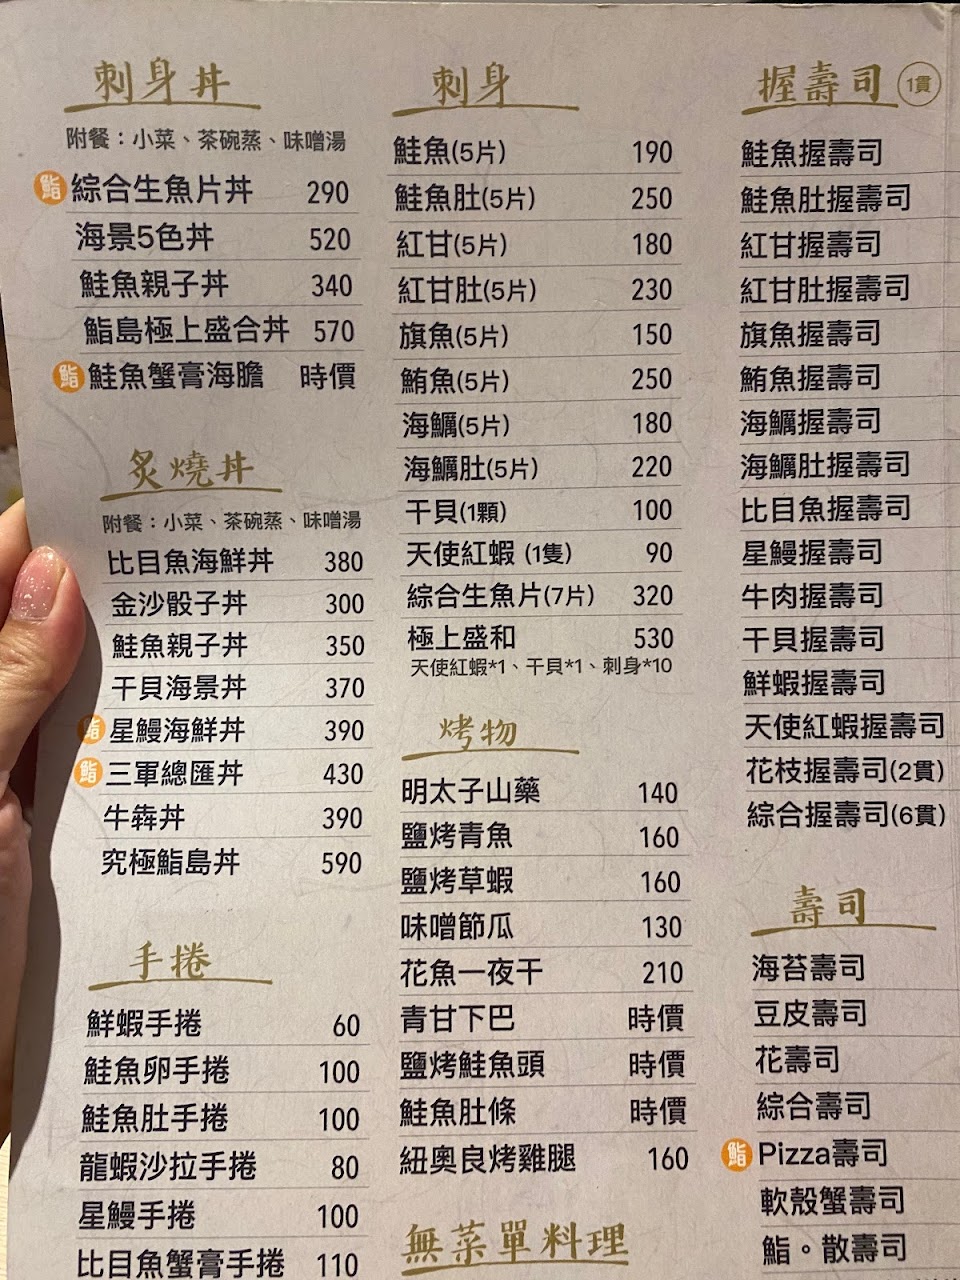 刺身丼
附餐：小菜、茶碗蒸、味噌湯
鮨 綜合生魚片丼 290
海景5色丼 520
鮭魚親子丼 340
鮨島極上盛合丼 570
鮨 鮭魚蟹膏海膽 時價
炙燒丼
附餐：小菜、茶碗蒸、味噌湯
比目魚海鮮丼 380
金沙骰子丼 300
鮭魚親子丼 350
干貝海景丼 370
鮨 星鰻海鮮丼 390
鮨 三軍總匯丼 430
牛犇丼 390
究極鮨島丼 590
手捲
鮮蝦手捲 60
鮭魚卵手捲 100
鮭魚肚手捲 100
龍蝦沙拉手捲 80
星鰻手捲 100
比目魚蟹膏手捲 110
刺身
鮭魚(5片) 190
鮭魚肚(5片) 250
紅甘(5片) 180
紅甘肚(5片) 230
旗魚(5片) 150
鮪魚(5片) 250
海鱺(5片) 180
海鱺肚(5片) 220
干貝(1顆) 100
天使紅蝦 (1隻) 90
綜合生魚片(7片) 320
極上盛和 530
天使紅蝦*1、干貝*1、刺身*10
烤物
明太子山藥 140
鹽烤青魚 160
鹽烤草蝦 160
味噌節瓜 130
花魚一夜干 210
青甘下巴 時價
鹽烤鮭魚頭 時價
鮭魚肚條 時價
紐奧良烤雞腿 160
無菜單料理
握壽司 1貫
鮭魚握壽司
鮭魚肚握壽司
紅甘握壽司
紅甘肚握壽司
旗魚握壽司
鮪魚握壽司
海鱺握壽司
海鱺肚握壽司
比目魚握壽司
星鰻握壽司
牛肉握壽司
干貝握壽司
鮮蝦握壽司
天使紅蝦握壽司
花枝握壽司(2貫)
綜合握壽司(6貫)
壽司
海苔壽司
豆皮壽司
花壽司
綜合壽司
鮨 Pizza壽司
軟殼蟹壽司
鮨。散壽司